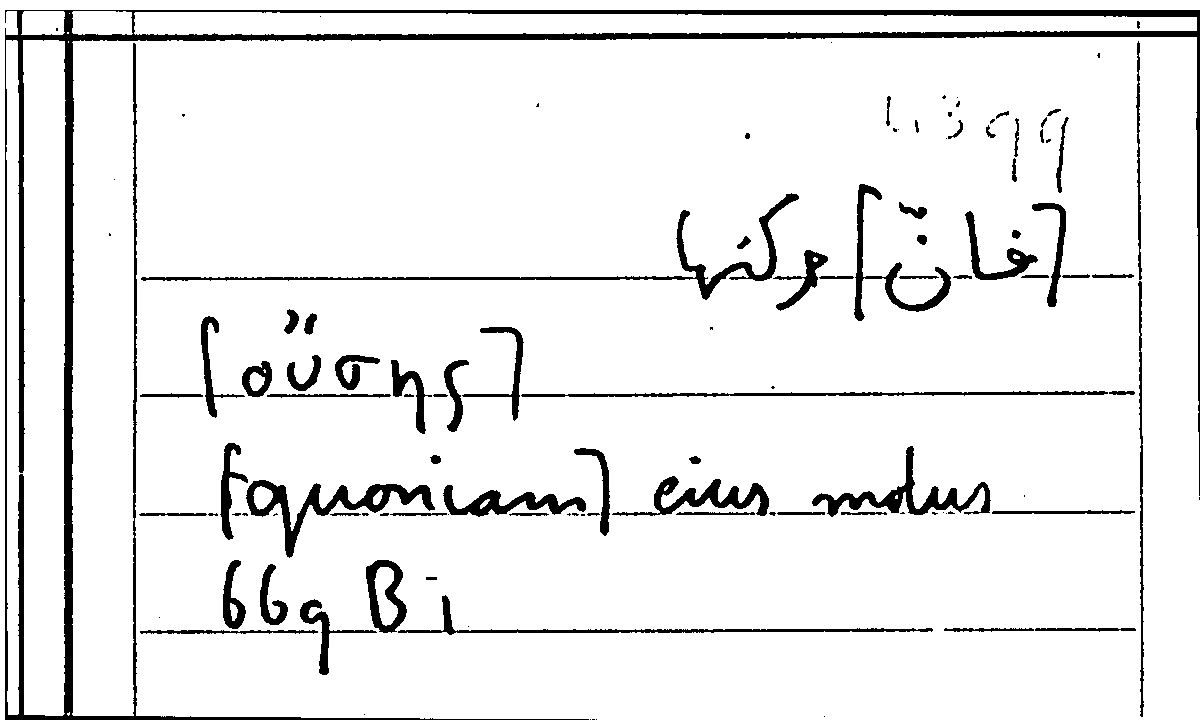 [فانّ] حركتها
[οὔσης]
[quoniam] eius motus
669 B 1